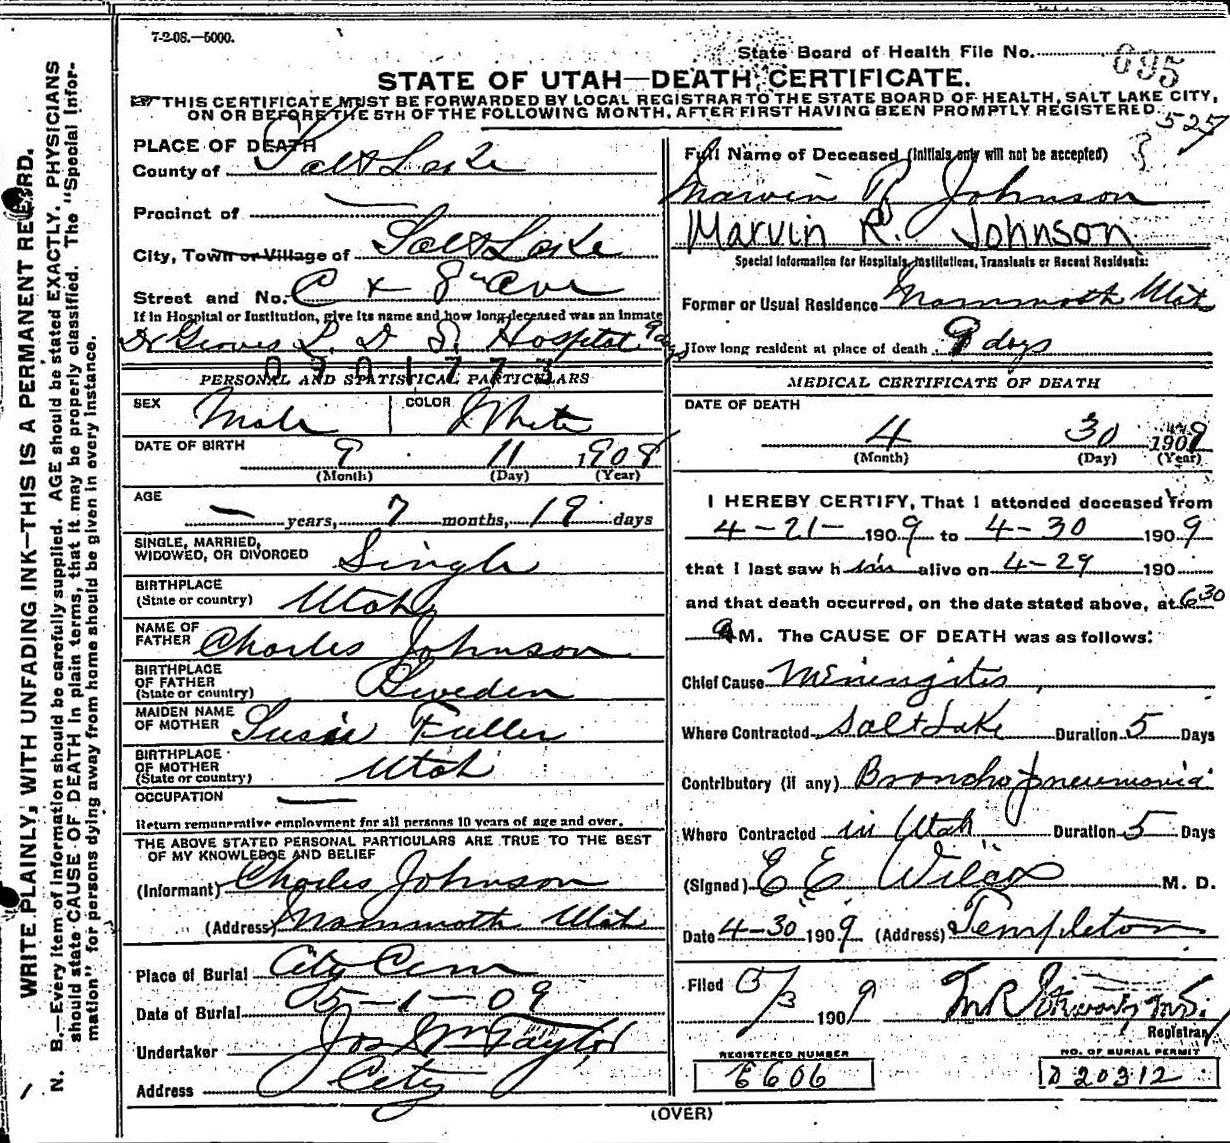 7-2-08.—5000.
State Board of Health File No. 695
STATE OF UTAH—DEATH CERTIFICATE.
THIS CERTIFICATE MUST BE FORWARDED BY LOCAL REGISTRAR TO THE STATE BOARD OF HEALTH, SALT LAKE CITY,
ON OR BEFORE THE 5TH OF THE FOLLOWING MONTH, AFTER FIRST HAVING BEEN PROMPTLY REGISTERED.
527
WRITE PLAINLY, WITH UNFADING INK—THIS IS A PERMANENT RECORD.
N. B.—Every item of information should be carefully supplied. AGE should be stated EXACTLY. PHYSICIANS
should state CAUSE OF DEATH in plain terms, that it may be properly classified. The "Special Infor-
mation" for persons dying away from home should be given in every instance.
PLACE OF DEATH
County of Salt Lake
Precinct of —
City, Town or Village of Salt Lake
Street and No. C & 8th Ave
If in Hospital or Institution, give its name and how long deceased was an inmate
Dr Groves L. D. S. Hospital 9 days
0901773
PERSONAL AND STATISTICAL PARTICULARS
SEX Male COLOR White
DATE OF BIRTH 9 11 1908
(Month) (Day) (Year)
AGE
— years, 7 months, 19 days
SINGLE, MARRIED,
WIDOWED, OR DIVORCED Single
BIRTHPLACE
(State or country) Utah
NAME OF
FATHER Charles Johnson
BIRTHPLACE
OF FATHER
(State or country) Sweden
MAIDEN NAME
OF MOTHER Susie Fuller
BIRTHPLACE
OF MOTHER
(State or country) Utah
OCCUPATION —
Return remunerative employment for all persons 10 years of age and over.
THE ABOVE STATED PERSONAL PARTICULARS ARE TRUE TO THE BEST
OF MY KNOWLEDGE AND BELIEF
(Informant) Charles Johnson
(Address) Mammoth Utah
Place of Burial City Cem
Date of Burial 5-1-09
Undertaker Jos Wm Taylor
Address City
Full Name of Deceased (Initials only will not be accepted)
Marvin R Johnson
Marvin R. Johnson
Special Information for Hospitals, Institutions, Transients or Recent Residents:
Former or Usual Residence Mammoth Utah
How long resident at place of death 9 days
MEDICAL CERTIFICATE OF DEATH
DATE OF DEATH
4 30 1909
(Month) (Day) (Year)
I HEREBY CERTIFY, That I attended deceased from
4-21- 1909 to 4-30 1909
that I last saw him alive on 4-29 190
and that death occurred, on the date stated above, at 6 30
A M. The CAUSE OF DEATH was as follows:
Chief Cause Meningitis
Where Contracted Salt Lake Duration 5 Days
Contributory (if any) Broncho pneumonia
Where Contracted in Utah Duration 5 Days
(Signed) E E Wilcox M. D.
Date 4-30 1909 (Address) Templeton
Filed 5/3 1909
Registrar
REGISTERED NUMBER
E606
NO. OF BURIAL PERMIT
D 20312
(OVER)